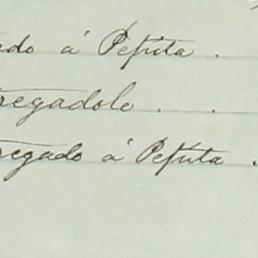 ado á Pepita .
regadole . .
regado á Pepita .